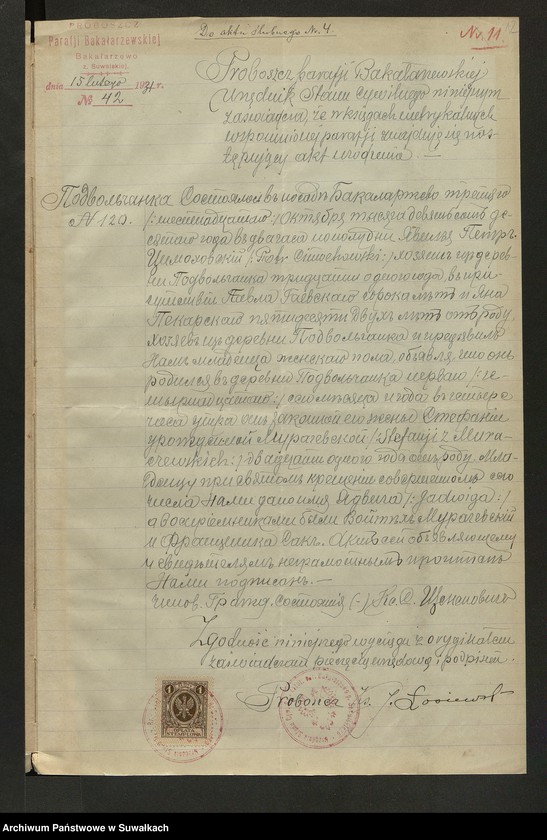 Do aktu ślubnego Nr. 4.
No. 11
PROBOSZCZ
Parafji Bakałarzewskiej
Bakałarzewo
z. Suwalskiej
dnia 15 lutego 1931 r.
№ 42
Proboszcz parafji Bakałarzewskiej
Urzędnik Stanu Cywilnego niniejszym
zaświadcza, że w księgach metrykalnych
wspomnianej parafji znajduje się nas-
tępujący akt urodzenia. —
Подвольчанка
№ 120.
Состоялось въ посадѣ Бакаларжево третьяго
/:шестнадцатаго:/ Октября тысяча девятьсотъ де-
сятаго года въ два часа пополудни. Явился Петръ
Цьмоховскій /:Piotr Cimochowski:/ хозяинъ изъ дерев-
ни Подвольчанка тридцати одного года, въ при-
сутствіи Павла Гаевскаго сорока лѣтъ и Яна
Пекарскаго пятидесяти двухъ лѣтъ отъ роду,
хозяевъ изъ деревни Подвольчанка и предъявилъ
Намъ младенца женскаго пола, объявляя, что онъ
родился въ деревнѣ Подвольчанка перваго /:че-
тырнадцатаго:/ сего мѣсяца и года въ четыре
часа утра отъ законной его жены Стефаніи
урожденной Мурачевской /:Stefanji z Mura-
czewskich:/ двадцати одного года отъ роду. Мла-
денцу при святомъ крещеніи совершенномъ сего
числа Нами дано имя Ядвига /:Jadwiga:/
а воспріемниками были Войтѣхъ Мурачевскій
и Францишка Сакл. Актъ сей объявляющему
и свидѣтелямъ неграмотнымъ прочитанъ
Нами подписанъ. —
чинов. Гражд. Состоянія (-) Кс. О.
Zgodność niniejszego wyciągu z oryginałem
zaświadczam pieczęcią urzędową i podpisem.
Proboszcz Ks. J. Łosiewski
1
1
OPŁATA
STEMPLOWA
Archiwum Państwowe w Suwałkach